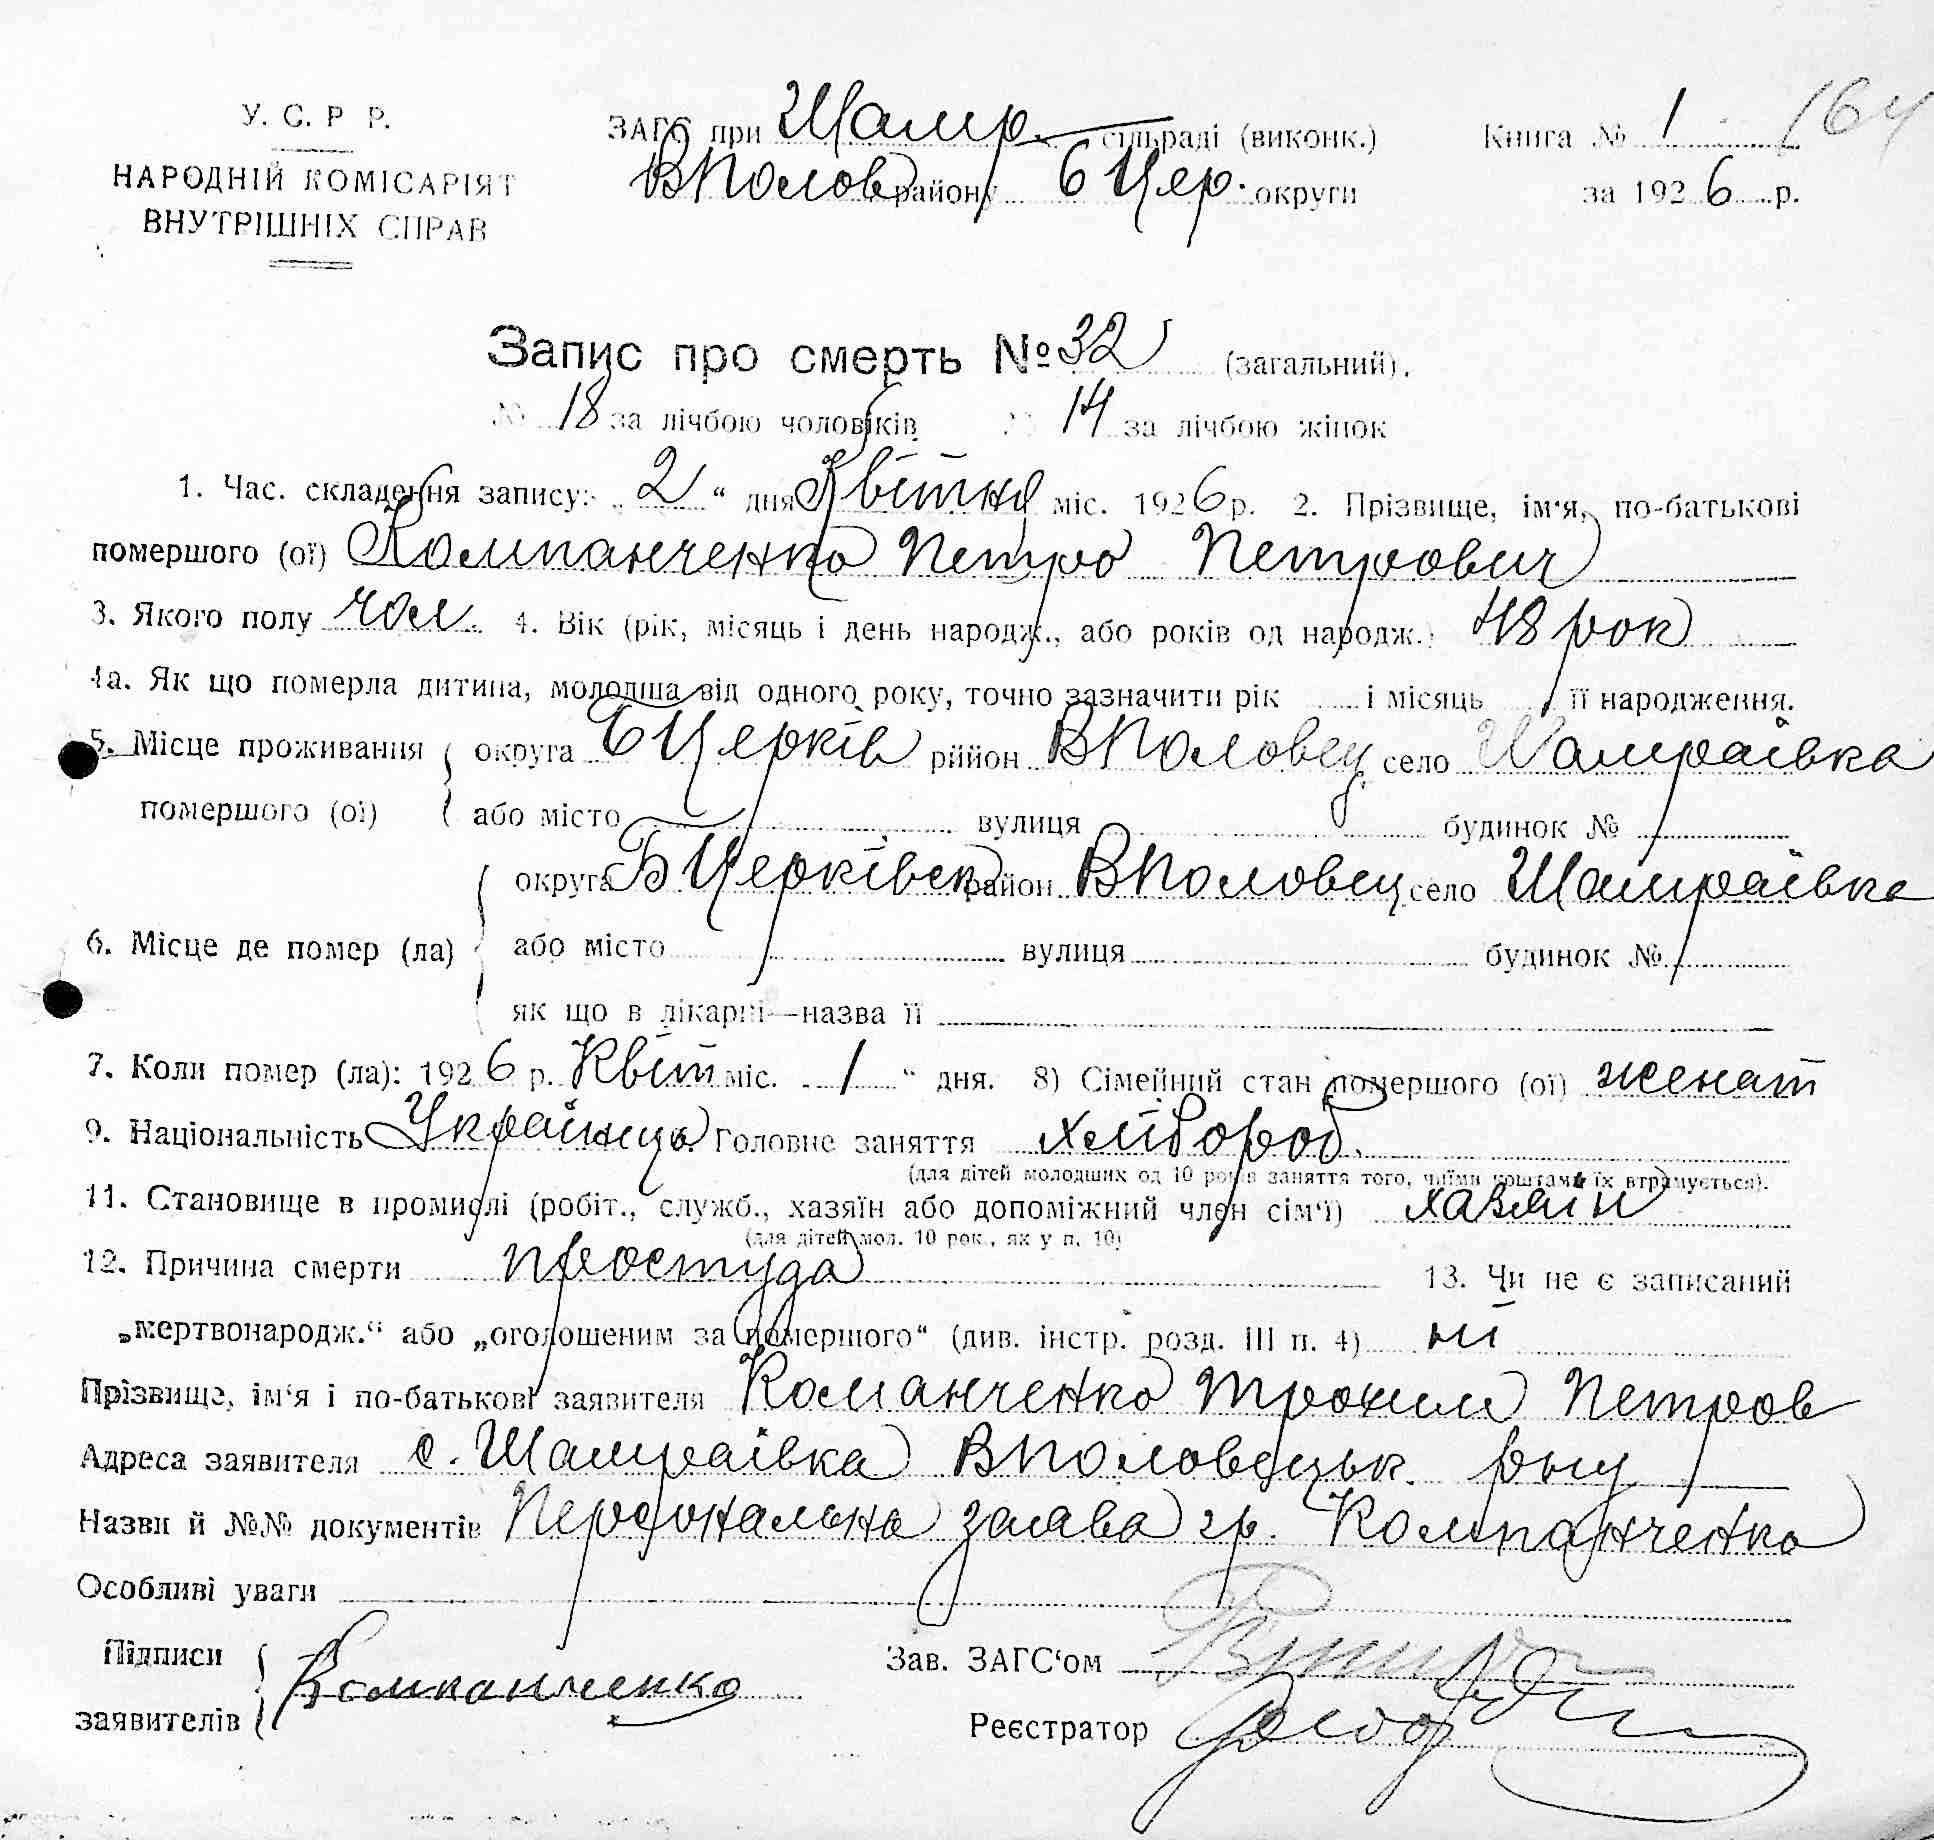 У. С. Р Р.
НАРОДНІЙ КОМІСАРІЯТ
ВНУТРІШНІХ СПРАВ
ЗАГС при Шамр. сільраді (виконк.)
ВПолов району БЦер. округи
Книга № 1 164
за 1926 р.
Запис про смерть № 32 (загальний).
№ 18 за лічбою чоловіків № 14 за лічбою жінок
1. Час. складення запису: „2“ дня Квітня міс. 1926 р. 2. Прізвище, ім'я, по-батькові
помершого (ої) Компанченко Петро Петрович
3. Якого полу чол. 4. Вік (рік, місяць і день народж., або років од народж.) 48 рок
4а. Як що померла дитина, молодша від одного року, точно зазначити рік і місяць її народження.
5. Місце проживання помершого (ої) округа БЦерків район ВПоловец село Шамраївка
або місто вулиця будинок №
6. Місце де помер (ла) округа БЦерківск район ВПоловец село Шамраївка
або місто вулиця будинок №
як що в лікарні—назва її
7. Коли помер (ла): 1926 р. Квіт міс. „1“ дня. 8) Сімейний стан помершого (ої) женат
9. Національність Українць Головне заняття хлібороб.
(для дітей молодших од 10 років заняття того, чиїми коштами їх втримується).
11. Становище в промислі (робіт., служб., хазяїн або допоміжний член сім'ї) хазяин
(для дітей мол. 10 рок., як у п. 10)
12. Причина смерти простуда 13. Чи не є записаний
„мертвонародж.“ або „оголошеним за помершого“ (див. інстр. розд. III п. 4) ні
Прізвище, ім'я і по-батькові заявителя Команченко Трохим Петров
Адреса заявителя с. Шамраївка ВПоловецьк. рну
Назви й №№ документів Персональна заява гр. Компанченко
Особливі уваги
Підписи заявителів Компанченко
Зав. ЗАГС'ом
Реєстратор